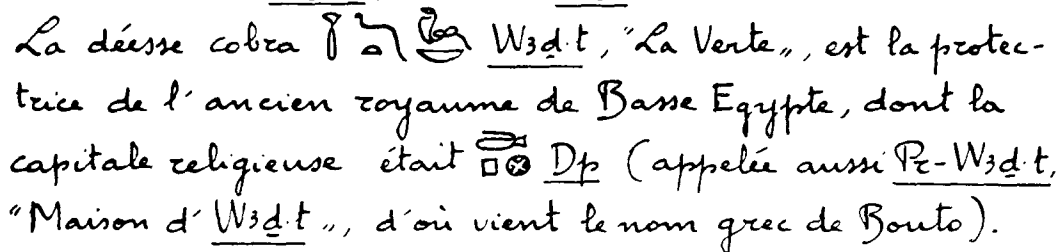 La déesse cobra 𓇅𓆓𓏏𓆗 W3ḏ.t, "La Verte„, est la protec-
trice de l'ancien royaume de Basse Egypte, dont la
capitale religieuse était Dp (appelée aussi Pr-W3ḏ.t,
"Maison d'W3ḏ.t„, d'où vient le nom grec de Bouto).